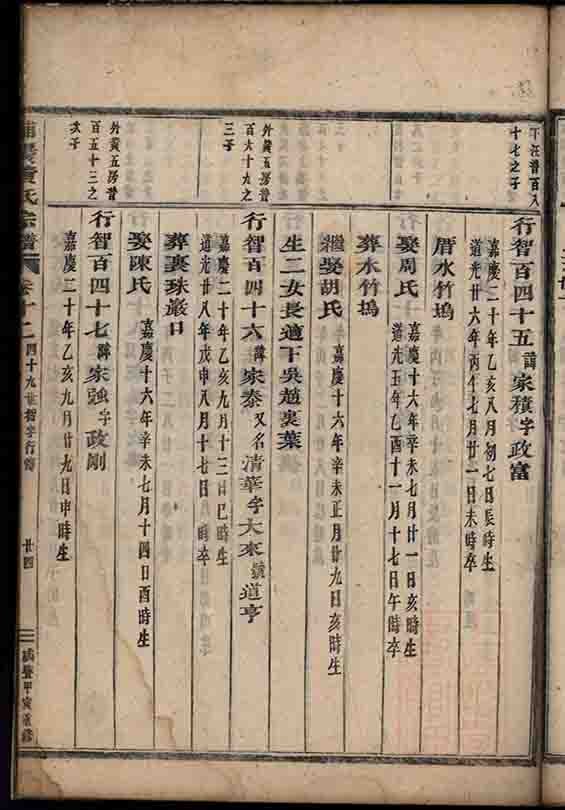 下汪晋百八
十七之子
行智百四十五諱家積字政富
嘉慶二十年乙亥八月初七日辰時生
道光廿六年丙午七月廿一日未時卒
厝水竹塢
娶周氏
嘉慶十六年辛未七月廿一日亥時生
道光五年乙酉十一月十七日午時卒
葬水竹塢
繼娶胡氏
嘉慶十六年辛未正月廿九日亥時生
生二女長適下吳趙裏葉
外黄五房晋
百六十九之
三子
行智百四十六諱家泰又名清華字大來號道亨
嘉慶二十年乙亥九月十三日巳時生
道光廿八年戊申八月十七日時卒
葬裏珠巖口
娶陳氏
嘉慶十六年辛未七月十四日酉時生
外黄五房晋
百五十三之
次子
行智百四十七諱家強字政剛
嘉慶二十年乙亥九月廿九日申時生
氏宗譜
卷十二
四十九世智字行傳
廿四
咸豐甲寅重修